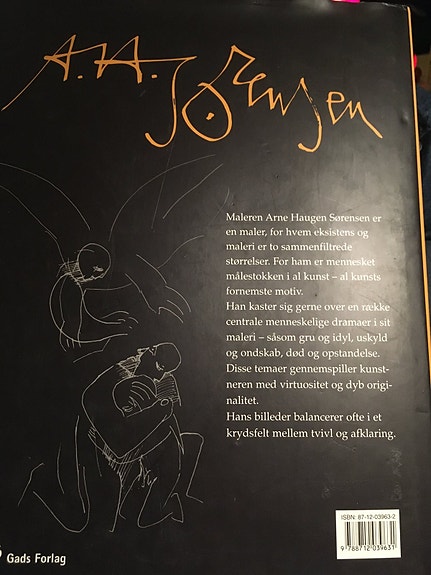 A.H. Sørensen
Maleren Arne Haugen Sørensen er
en maler, for hvem eksistens og
maleri er to sammenfiltrede
størrelser. For ham er mennesket
målestokken i al kunst – al kunsts
fornemste motiv.
Han kaster sig gerne over en række
centrale menneskelige dramaer i sit
maleri – såsom gru og idyl, uskyld
og ondskab, død og opstandelse.
Disse temaer gennemspiller kunst-
neren med virtuositet og dyb origi-
nalitet.
Hans billeder balancerer ofte i et
krydsfelt mellem tvivl og afklaring.
ISBN: 87-12-03963-2
9 788712 039631
Gads Forlag